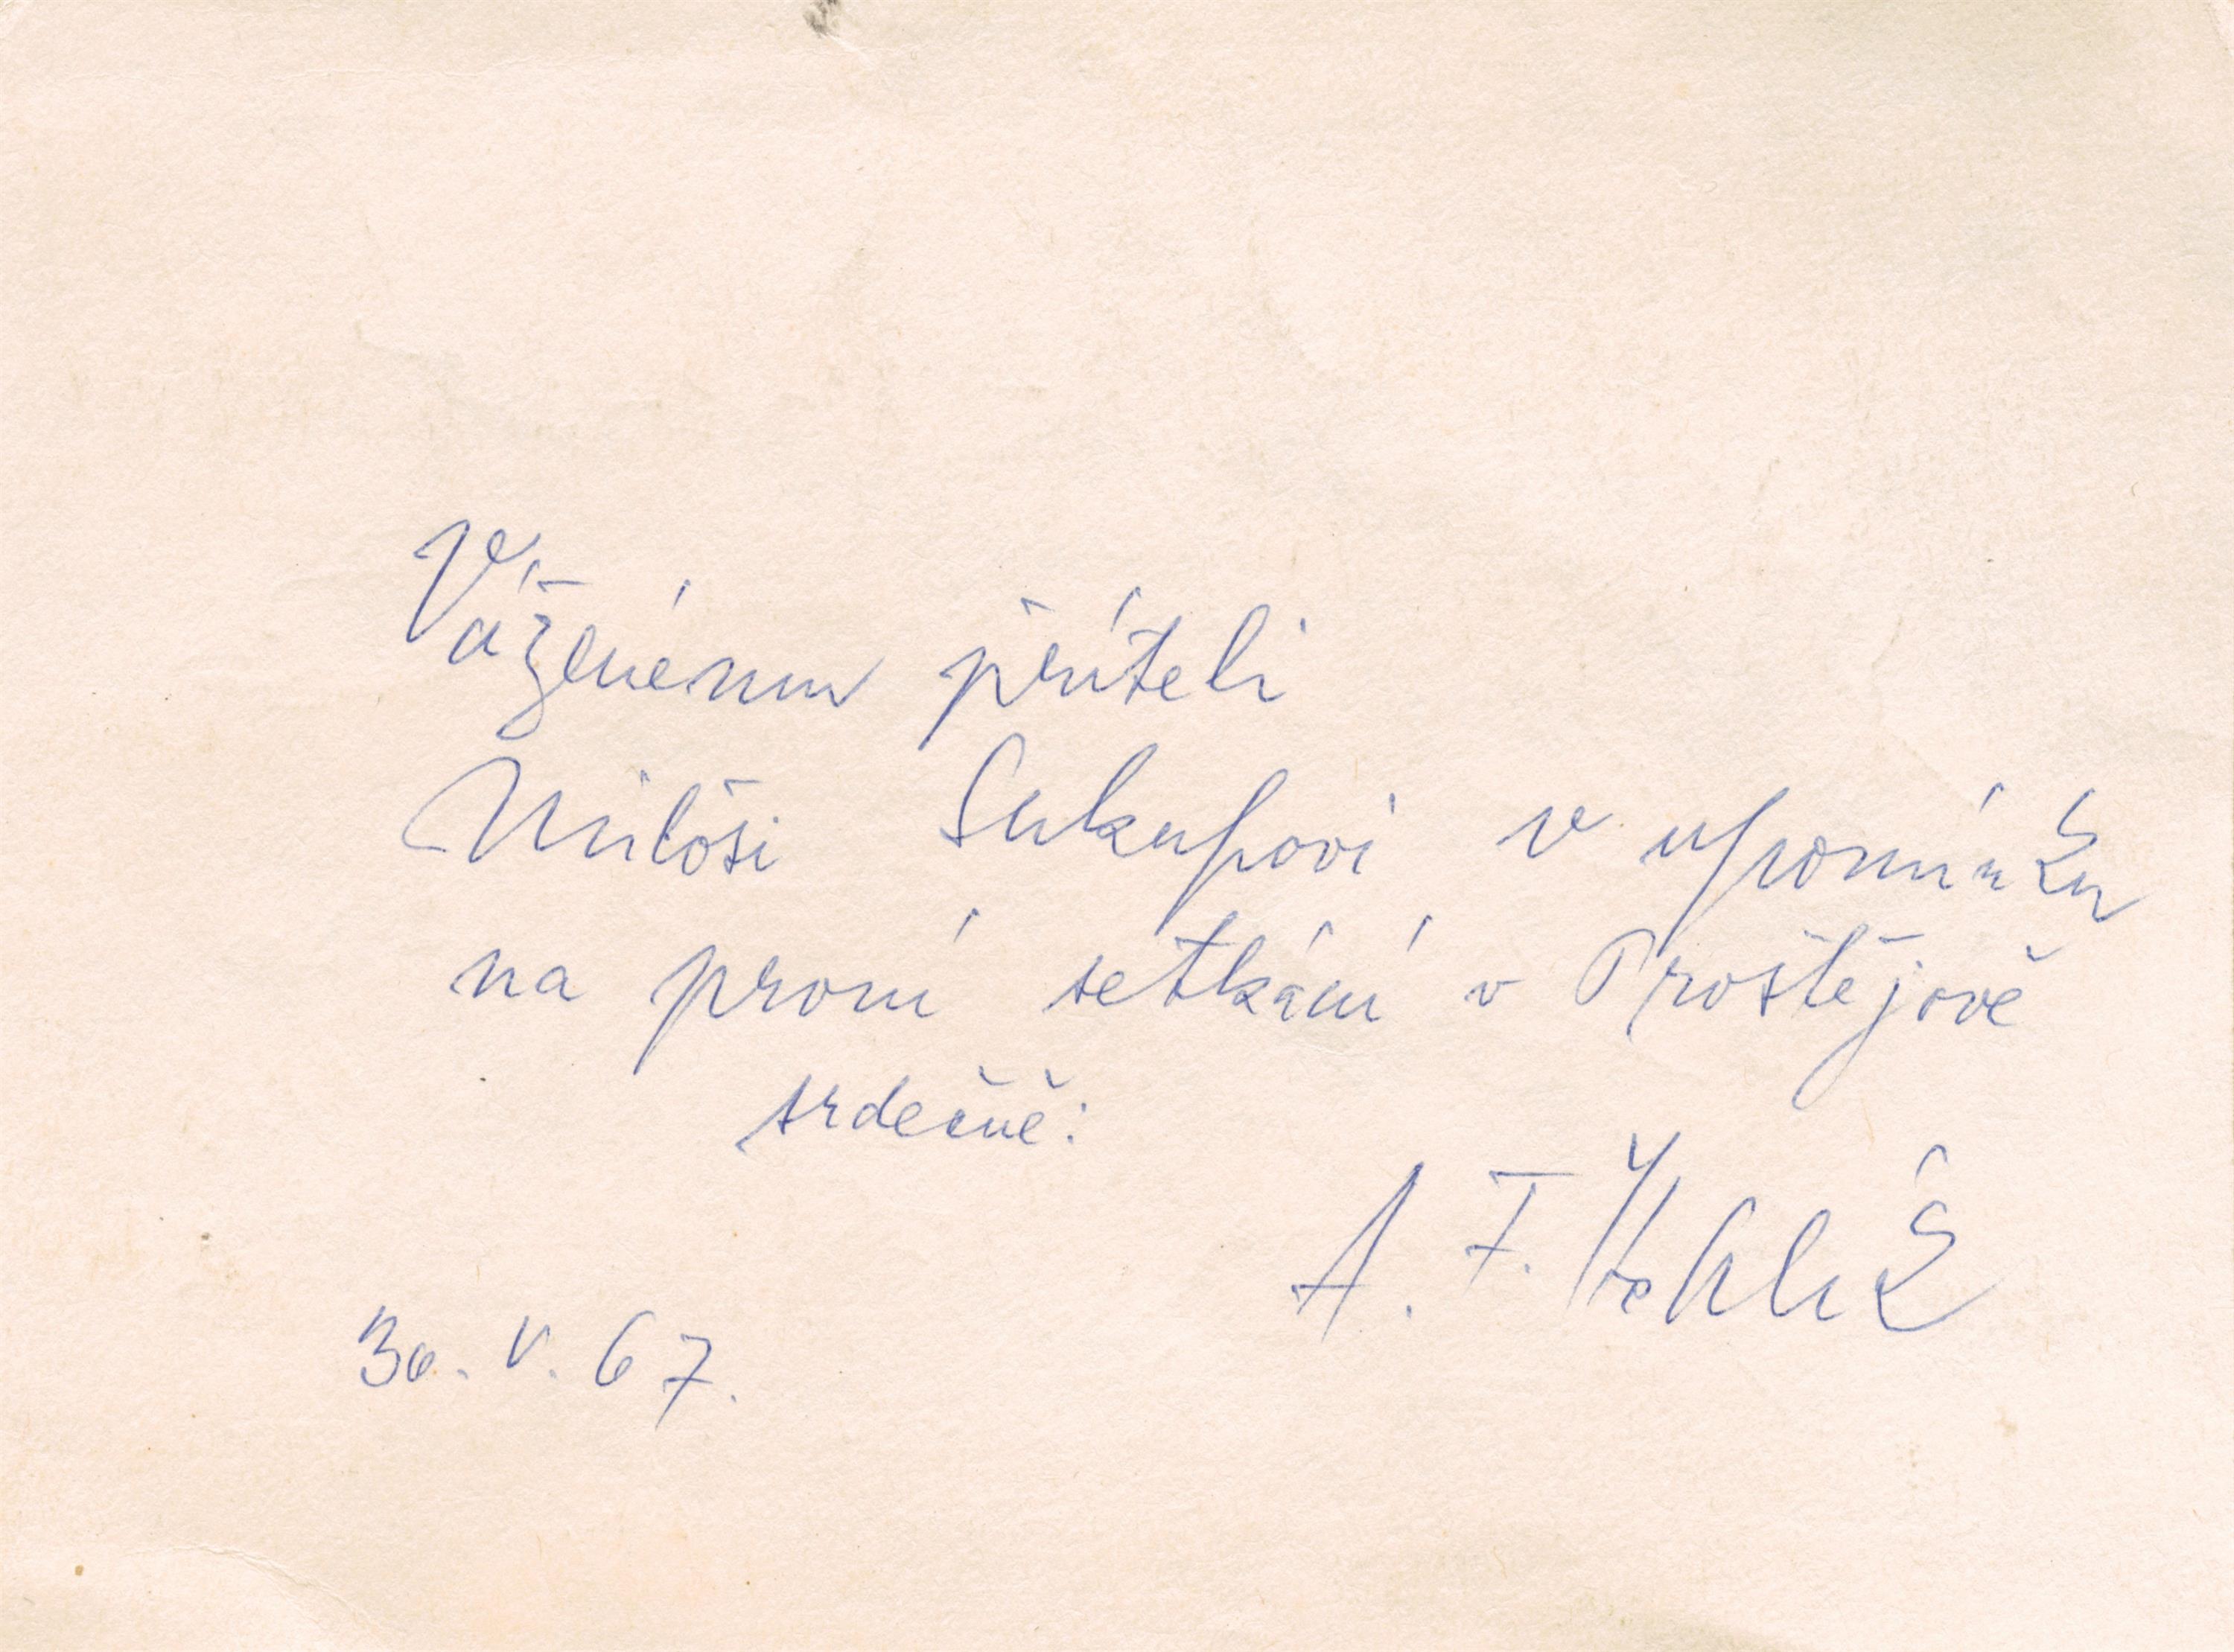 Váženému příteli
Miloši Sukupovi v upomínku
na první setkání v Prostějově
srdečně:
A. F.
30. V. 67.